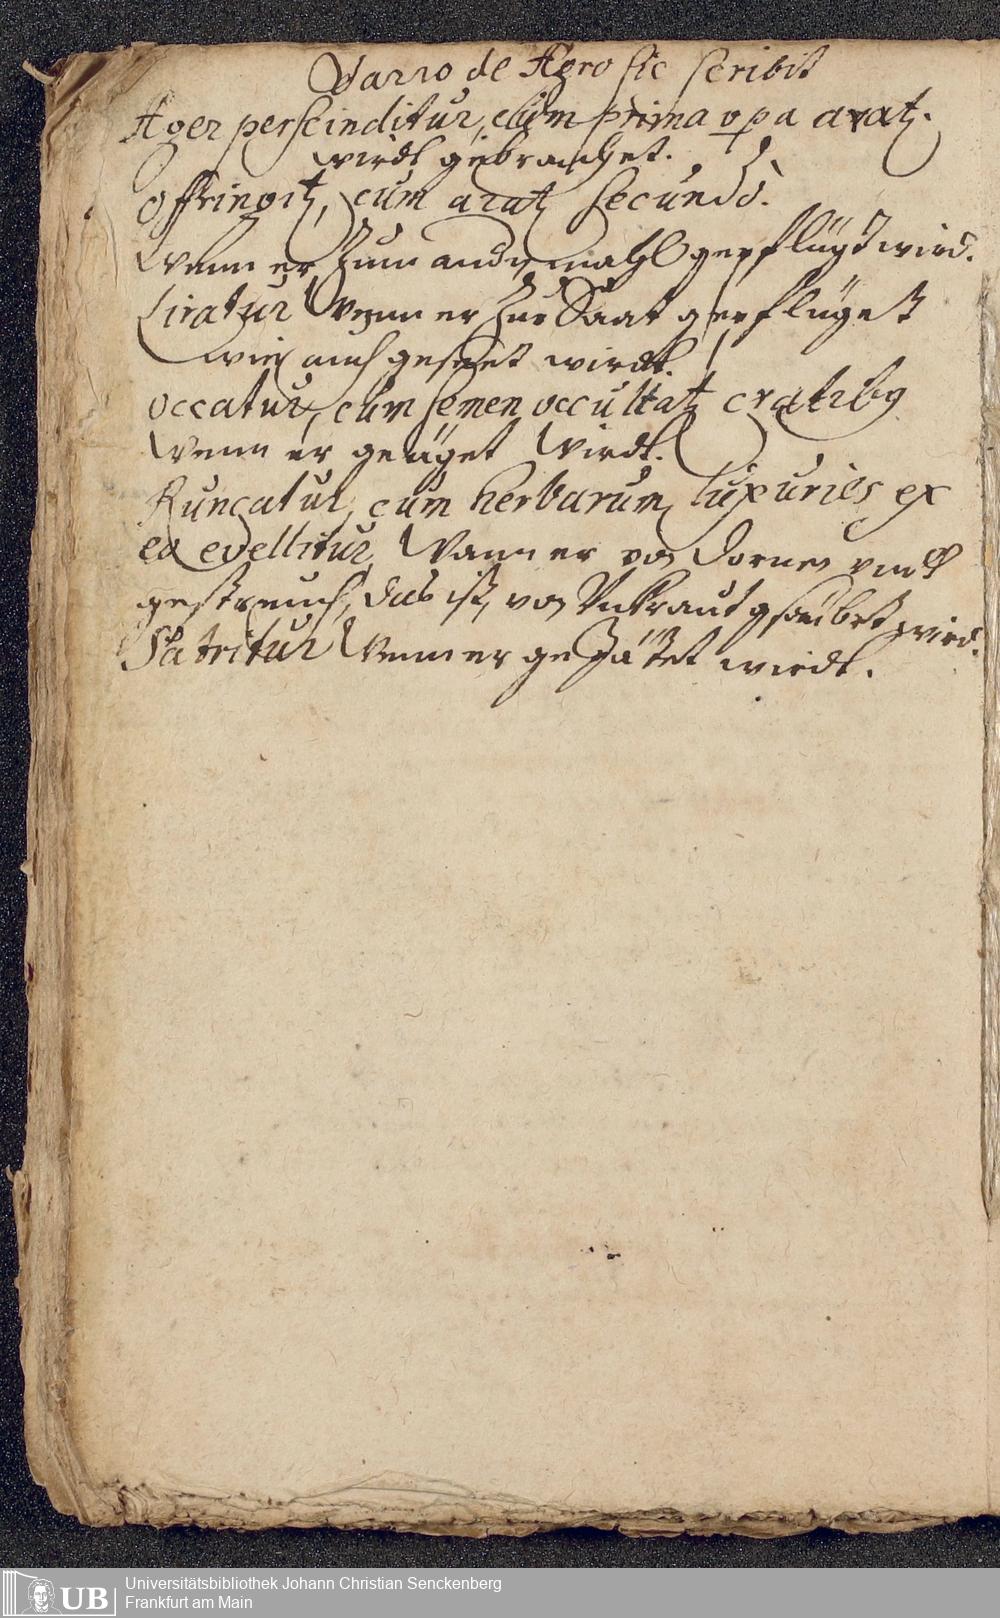 Varro de Agro sic scribit
Ager perscinditur, cum prima opa aratꝫ.
wirdt gebrachet.
Offringitꝫ, cum aratꝫ secundò.
Wenn er zum andermahl gepflügt wird.
Liratur Wenn er zur Saat gepflüget
wie auch geseet wirdt.
occatur, cum semen occultatꝫ cratibꝰ
Wenn er geäget wirdt.
Runcatur, cum herbarum luxuries ex
ea evellitur, Wann er von Dornen vndt
gestreuch, das ist, von Vnkraut gsaubert wird.
Satritur Wenn er gejätet wirdt.
UB Universitätsbibliothek Johann Christian Senckenberg
Frankfurt am Main